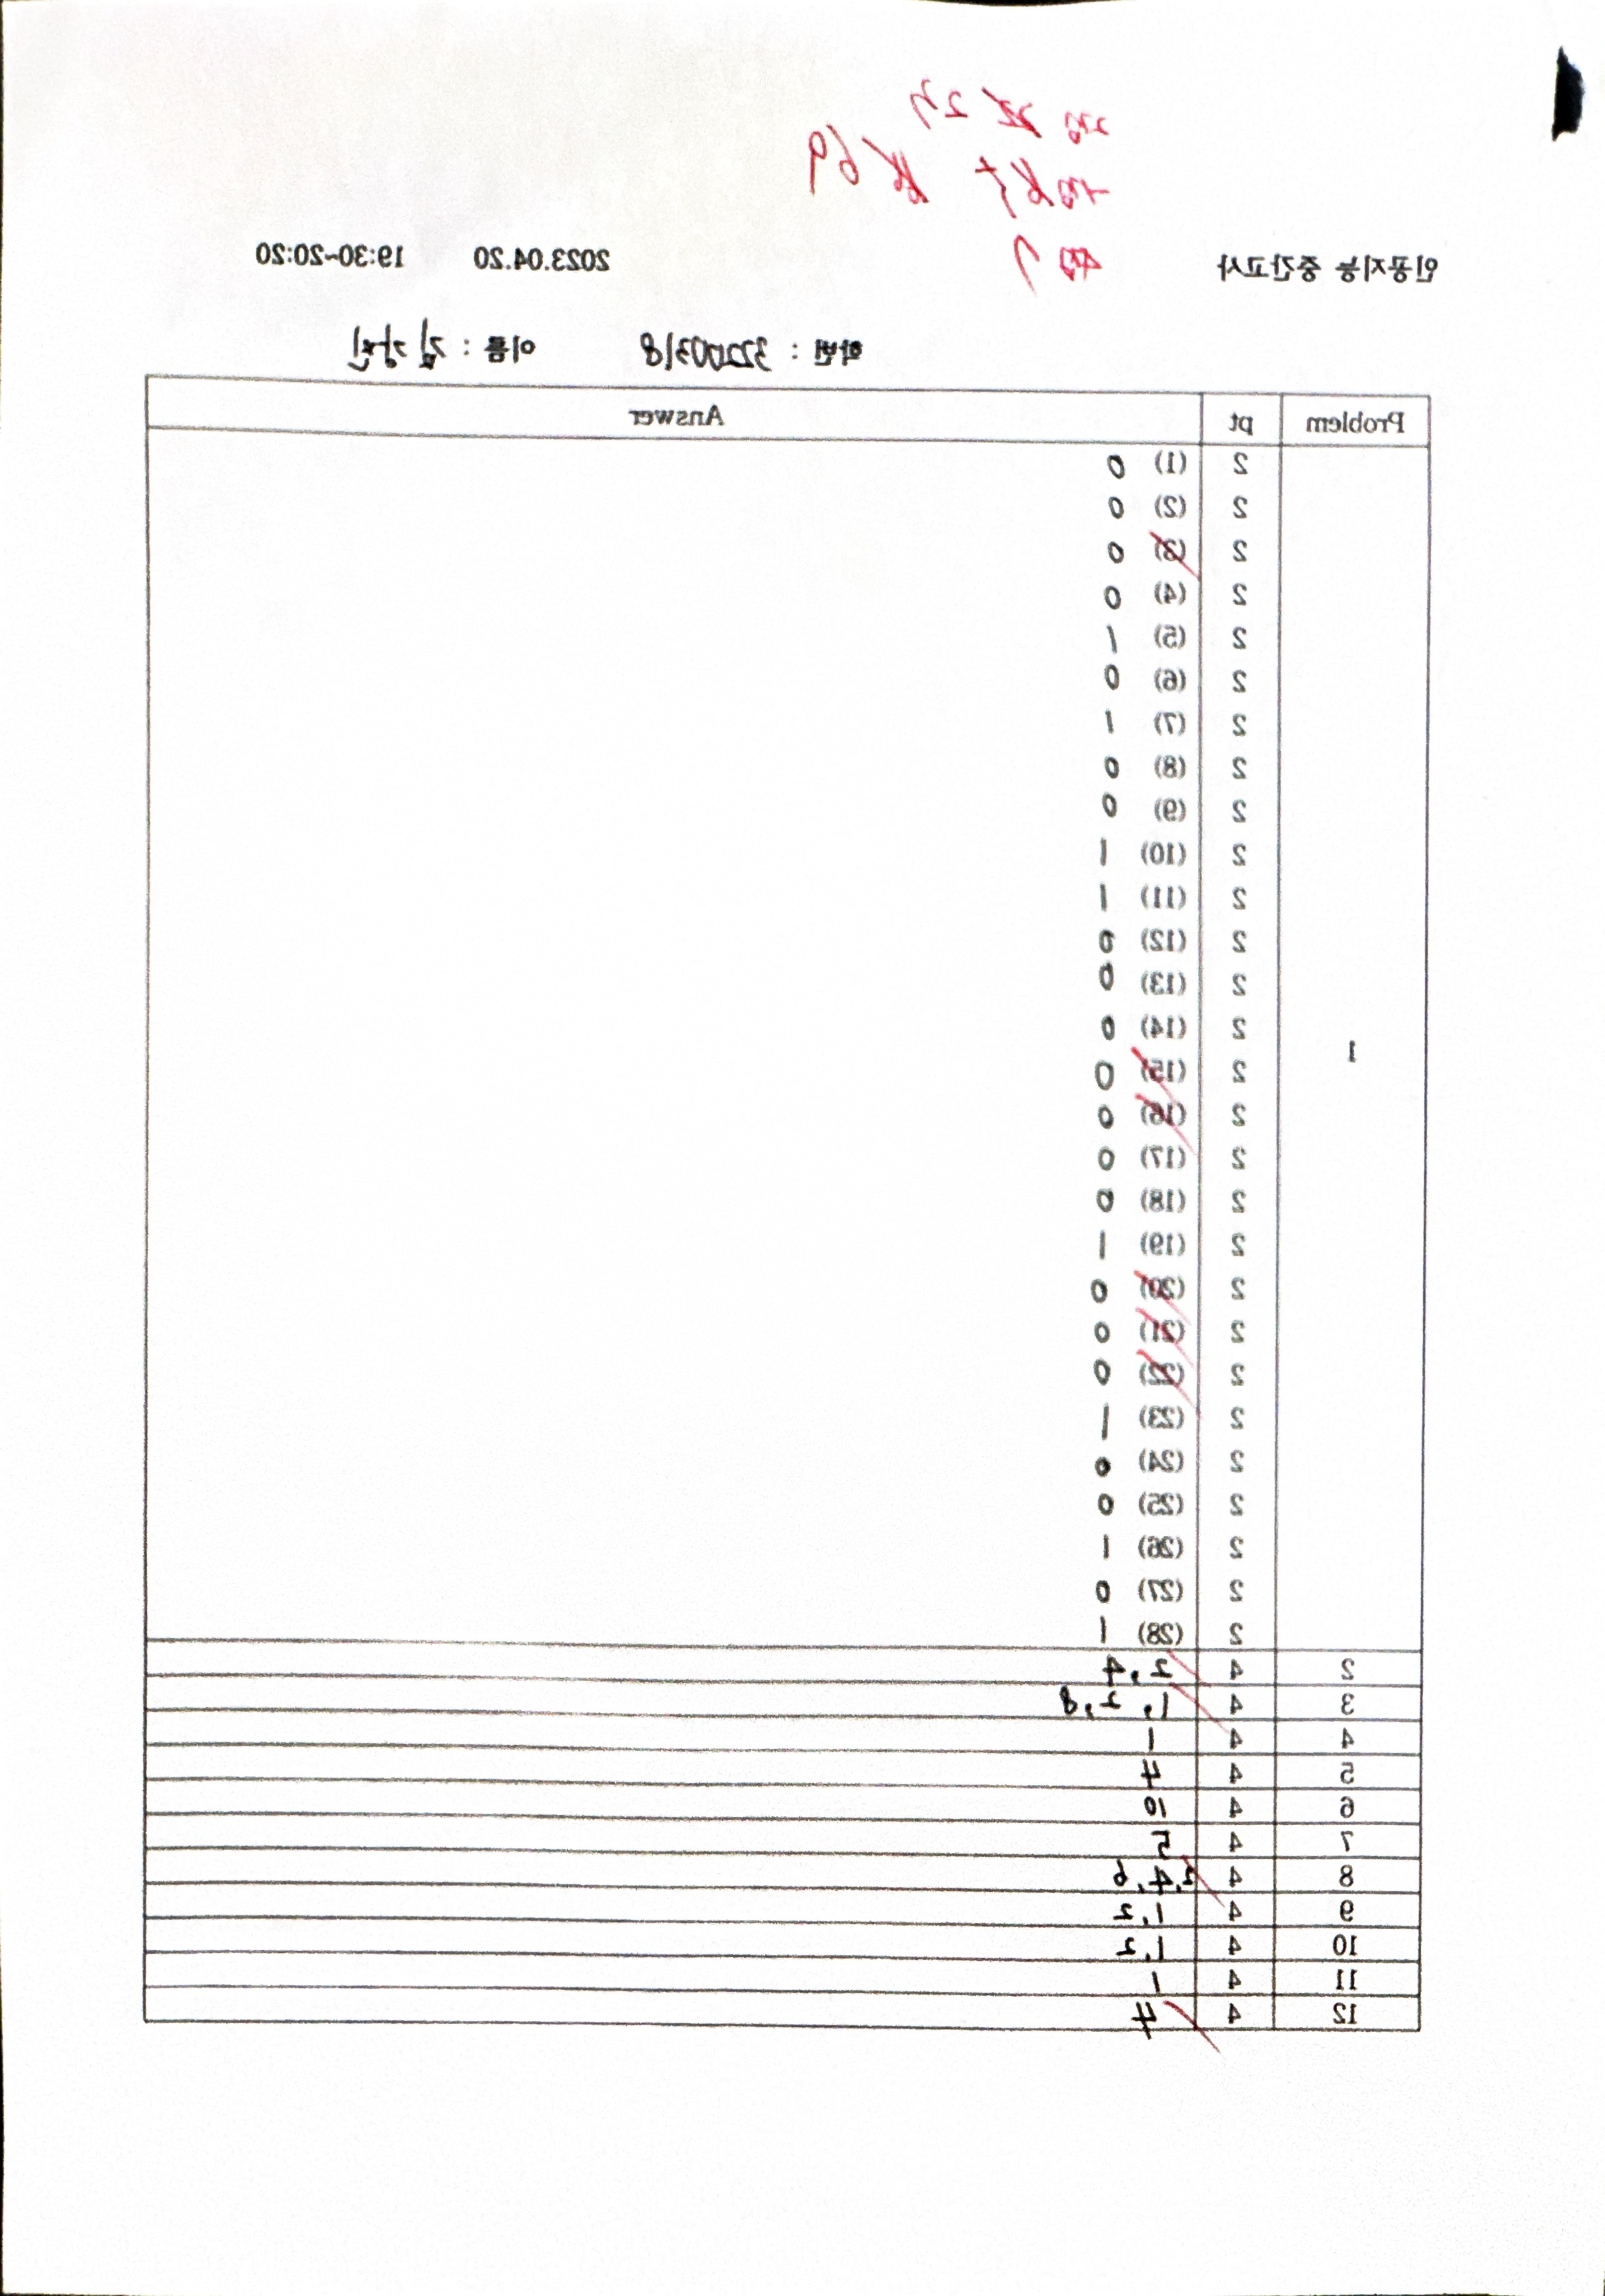 인공지능 중간고사 2023.04.20 19:30~20:20
학번 : 32200318 이름 : 김강민
Problem pt Answer
1
2 (1) 0
2 (2) 0
2 (3) 0
2 (4) 0
2 (5) 1
2 (6) 0
2 (7) 1
2 (8) 0
2 (9) 0
2 (10) 1
2 (11) 1
2 (12) 0
2 (13) 0
2 (14) 0
2 (15) 0
2 (16) 0
2 (17) 0
2 (18) 0
2 (19) 1
2 (20) 0
2 (21) 0
2 (22) 0
2 (23) 1
2 (24) 0
2 (25) 0
2 (26) 1
2 (27) 0
2 (28) 1
2 4 2,4
3 4 1, 2,8
4 4 1
5 4 4
6 4 10
7 4 5
8 4 2,4,6
9 4 1,2
10 4 1,2
11 4 1
12 4 4